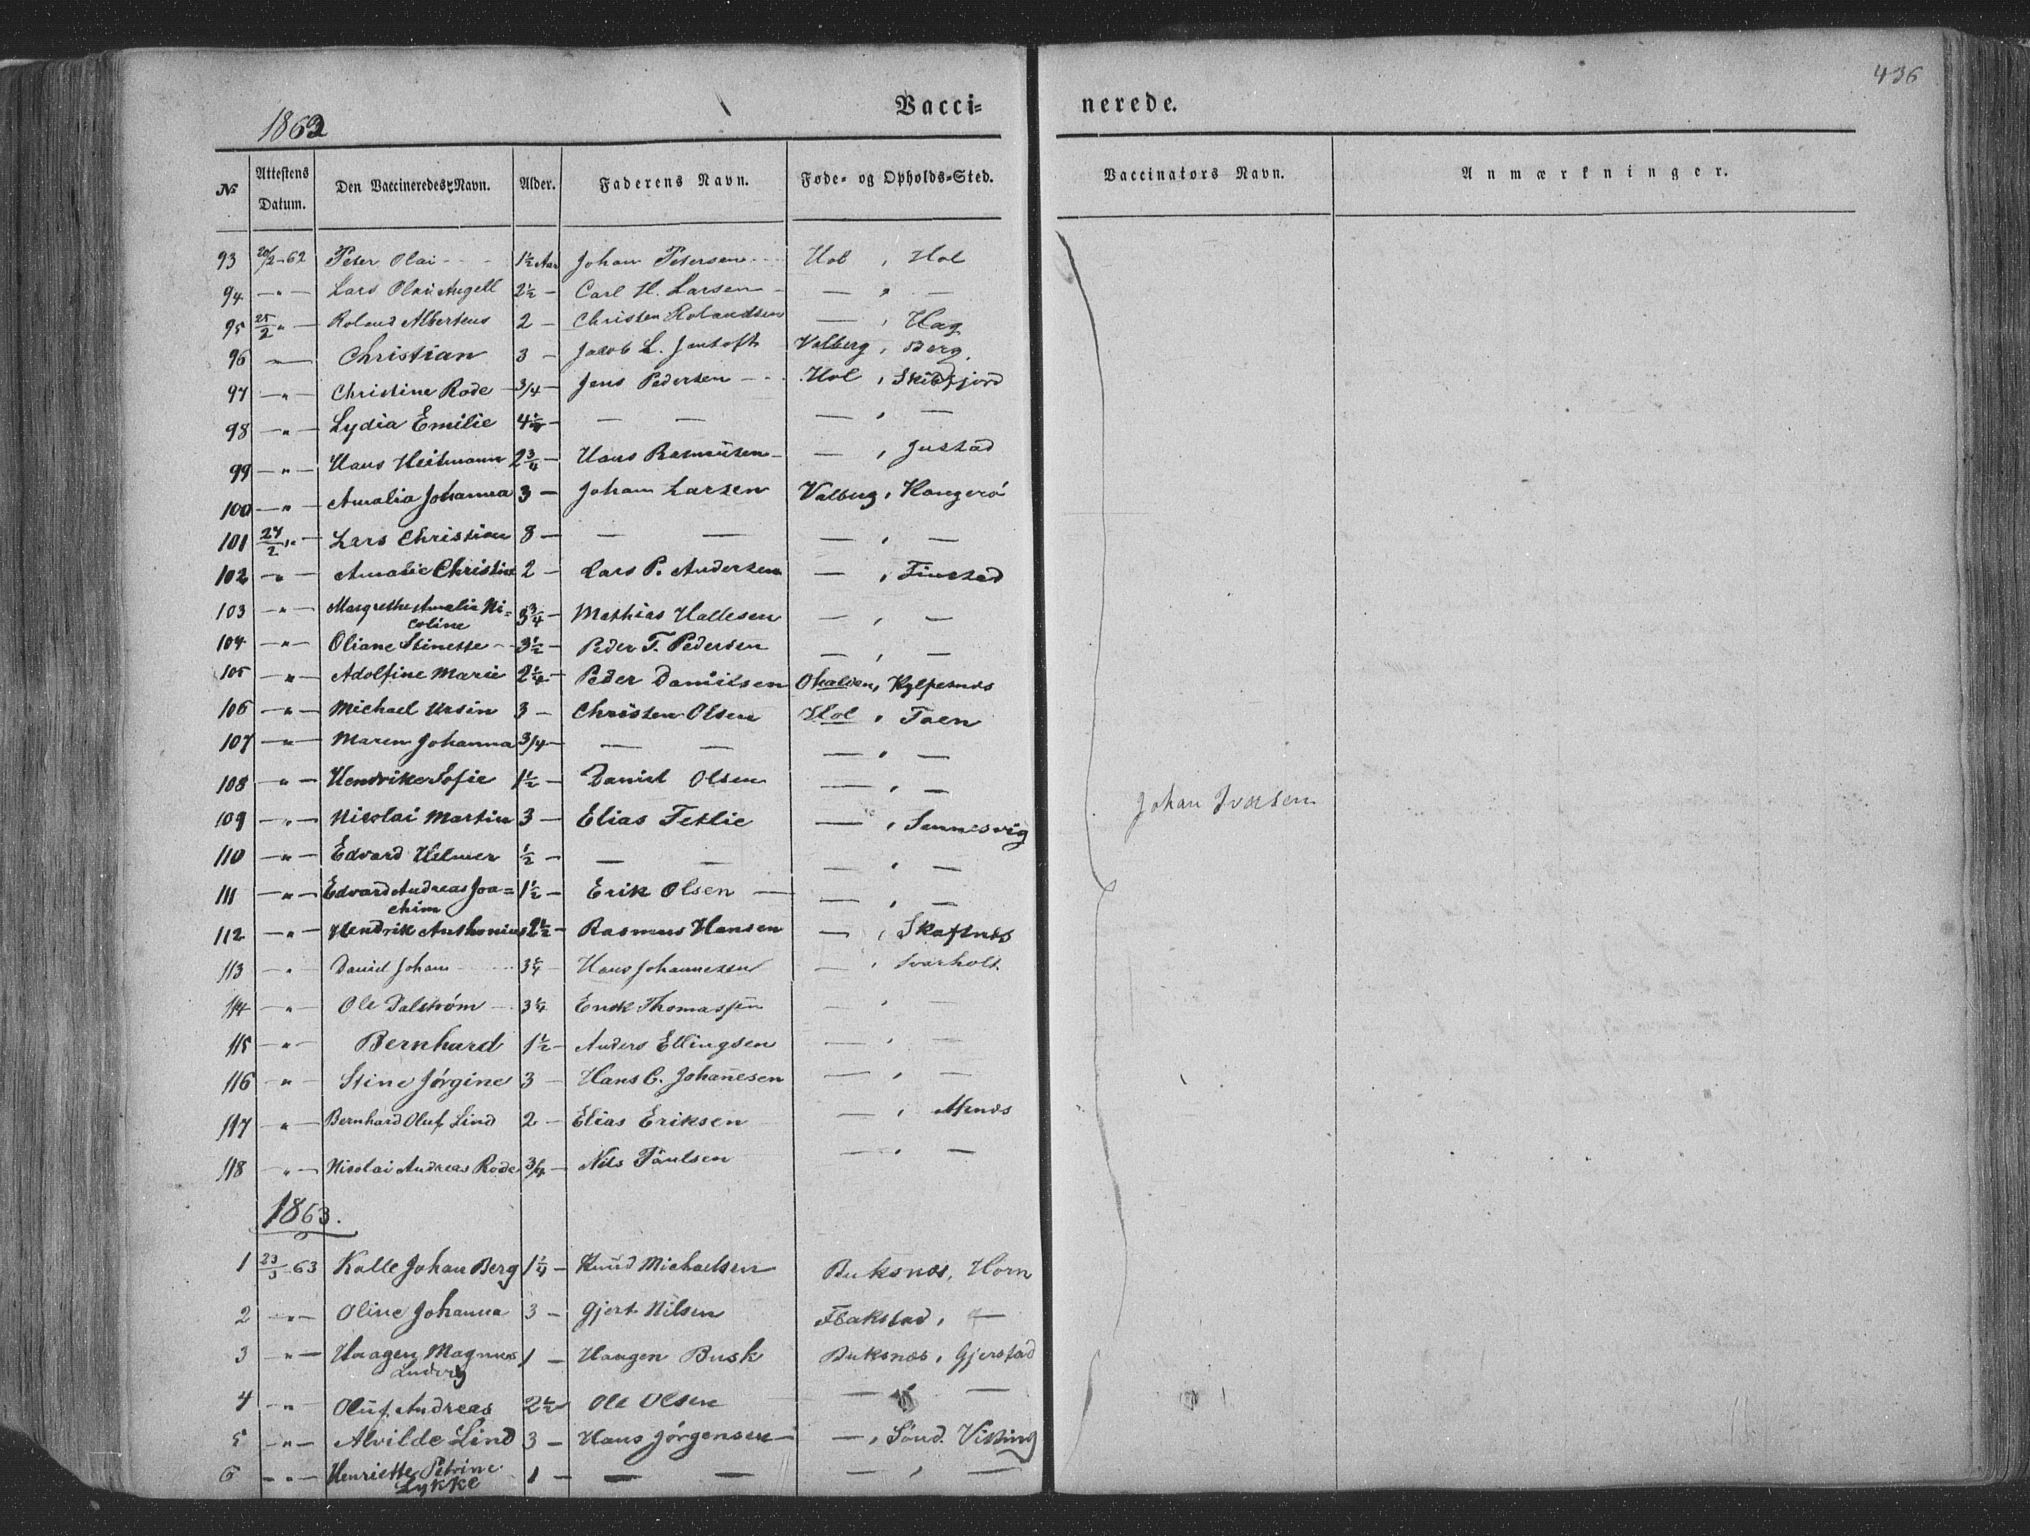 436
1862
Vacci= nerede.
№ Attestens Datum. Den Vaccineredes Navn. Alder. Faderens Navn. Føde- og Opholds-Sted. Vaccinators Navn. Anmærkninger.
93 20/2 62 Peter Olai 1½ Aar Johan Petersen Hol, Hol
94 — " — Lars Olai Angell 2½ — Carl H. Larsen — , —
95 25/2 " — Roland Albertus 2 — Christen Rolandsen — , Hag
96 — " — Christian 3 — Jacob L. Jentoft Valberg, Berg.
97 — " — Christine Rode 3/4 — Jens Pedersen Hol, Skibfjord
98 — " — Lydia Emilie 4½ — — — — , —
99 — " — Hans Heitmann 2¾ — Hans Rasmusen — , Justad
100 — " — Amalia Johanna 3 — Johan Larsen Valberg,
101 27/2 " — Lars Christian 8 — — — — , —
102 — " — Amalie Christine 2 — Lars P. Andersen — , Finstad
103 — " — Margrethe Amalia Ni=
coline 3¾ — Mathias Hallesen — , —
104 — " — Oliane Stinette 3½ — Peder T. Pedersen — , —
105 — " — Adolfine Marie 2¼ — Peder Danielsen
106 — " — Michael Ursin 3 — Christen Olsen Hol, Toen
107 — " — Maren Johanna 3/4 — — — — , —
108 — " — Hendrikke Sofie 1½ — Daniel Olsen — , —
109 — " — Nicolai Martin 3 — Elias Tetlie — , Sennesvig
110 — " — Edvard Helmer ½ — — — — , —
111 — " — Edvard Andreas Joa=
chim 1½ — Erik Olsen — , —
112 — " — Hendrik Anthonius 2½ — Rasmus Hansen — , Skaftnes
113 — " — Daniel Johan 3¼ — Hans Johannesen — , Ivarhols.
114 — " — Ole Dalstrøm 3¼ Enok Thomassen — , —
115 — " — Bernhard 1½ — Anders Ellingsen — , —
116 — " — Stine Jørgine 3 — Hans C. Johanesen — , —
117 — " — Bernhard Oluf Lind 2 — Elias Eriksen — ,
118 — " — Nicolai Andreas Rode 3/4 — Nils Paulsen — , —
Johan Iversen
1863.
1 23/3 63 Kalle Johan Berg 1¼ — Knud Michaelsen Buksnes, Horn
2 — " — Oline Johanna 3 — Gjert Nilsen Flakstad, —
3 — " — Haagen Magnus
1 — Haagen Busk Buksnes, Gjerstad
4 — " — Oluf Andreas 2½ Ole Olsen — , —
5 — " — Alvilde Lind 3 — Hans Jørgensen — , Sønd. Vitting
6 — " — Henriette Petrine
Lykke 1 — — — — , —